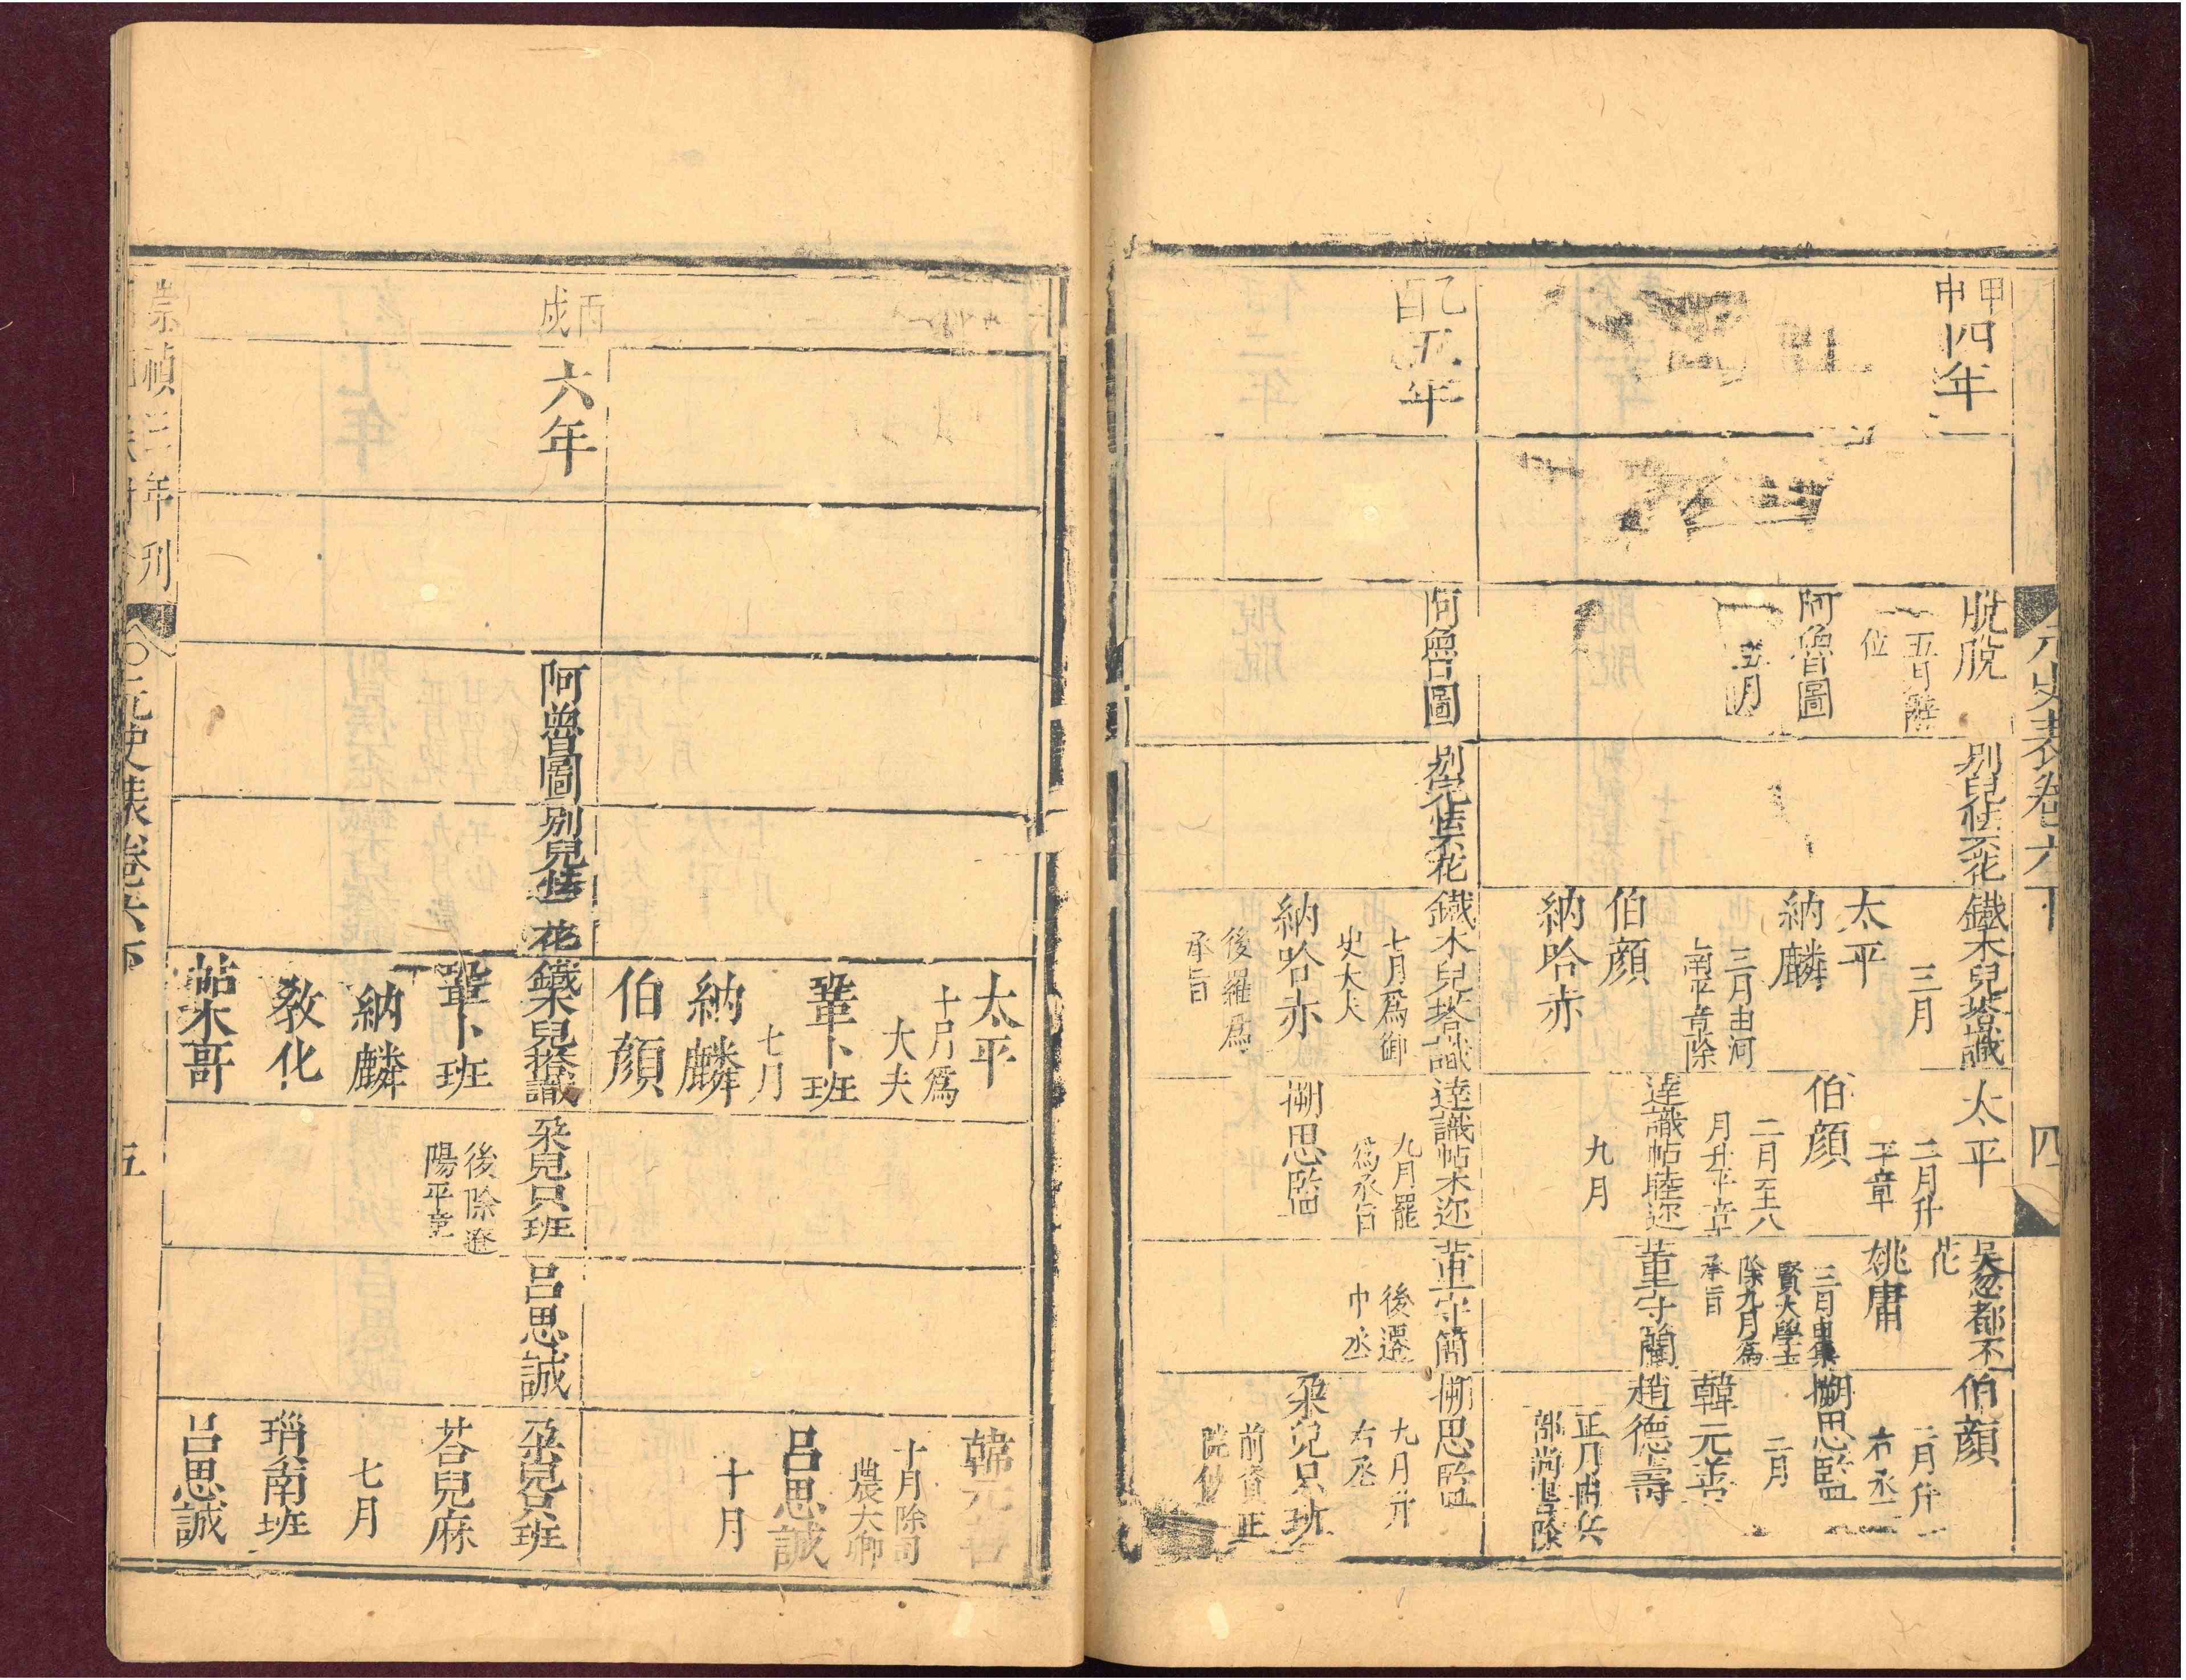 元史表卷六下
四
甲申
四年
脫脫
五月辭
位
阿魯圖
五月
別兒怯不花
鐵木兒塔識
三月
太平
納麟
三月由河
南平章除
伯顏
納哈赤
太平
二月升
平章
伯顏
二月至十八
月升平章
達識帖睦迩
九月
吴忽都不
花
姚庸
三月由集
賢大學士
除九月爲
承旨
董守簡
伯顏
二月升
右丞
搠思監
二月
韓元善
趙德壽
正月由兵
部尚書除
乙酉
五年
阿魯圖
別兒怯不花
鐵木兒塔識
七月爲御
史大夫
納哈赤
後羅爲
承旨
達識帖木迩
九月罷
爲承旨
搠思監
董守簡
後遷
中丞
搠思監
九月升
右丞
朶兒只班
前資正
院使
太平
十月爲
大夫
鞏卜班
七月
納麟
伯顏
韓元善
十月除司
農大卿
呂思誠
十月
丙戌
六年
阿魯圖
別兒怯
花
鐵木兒塔識
鞏卜班
納麟
教化
朶兒只班
後除遼
陽平章
呂思誠
朶兒只班
荅兒麻
七月
瑣南班
呂思誠
崇禎三年刊
元史表卷六下
五